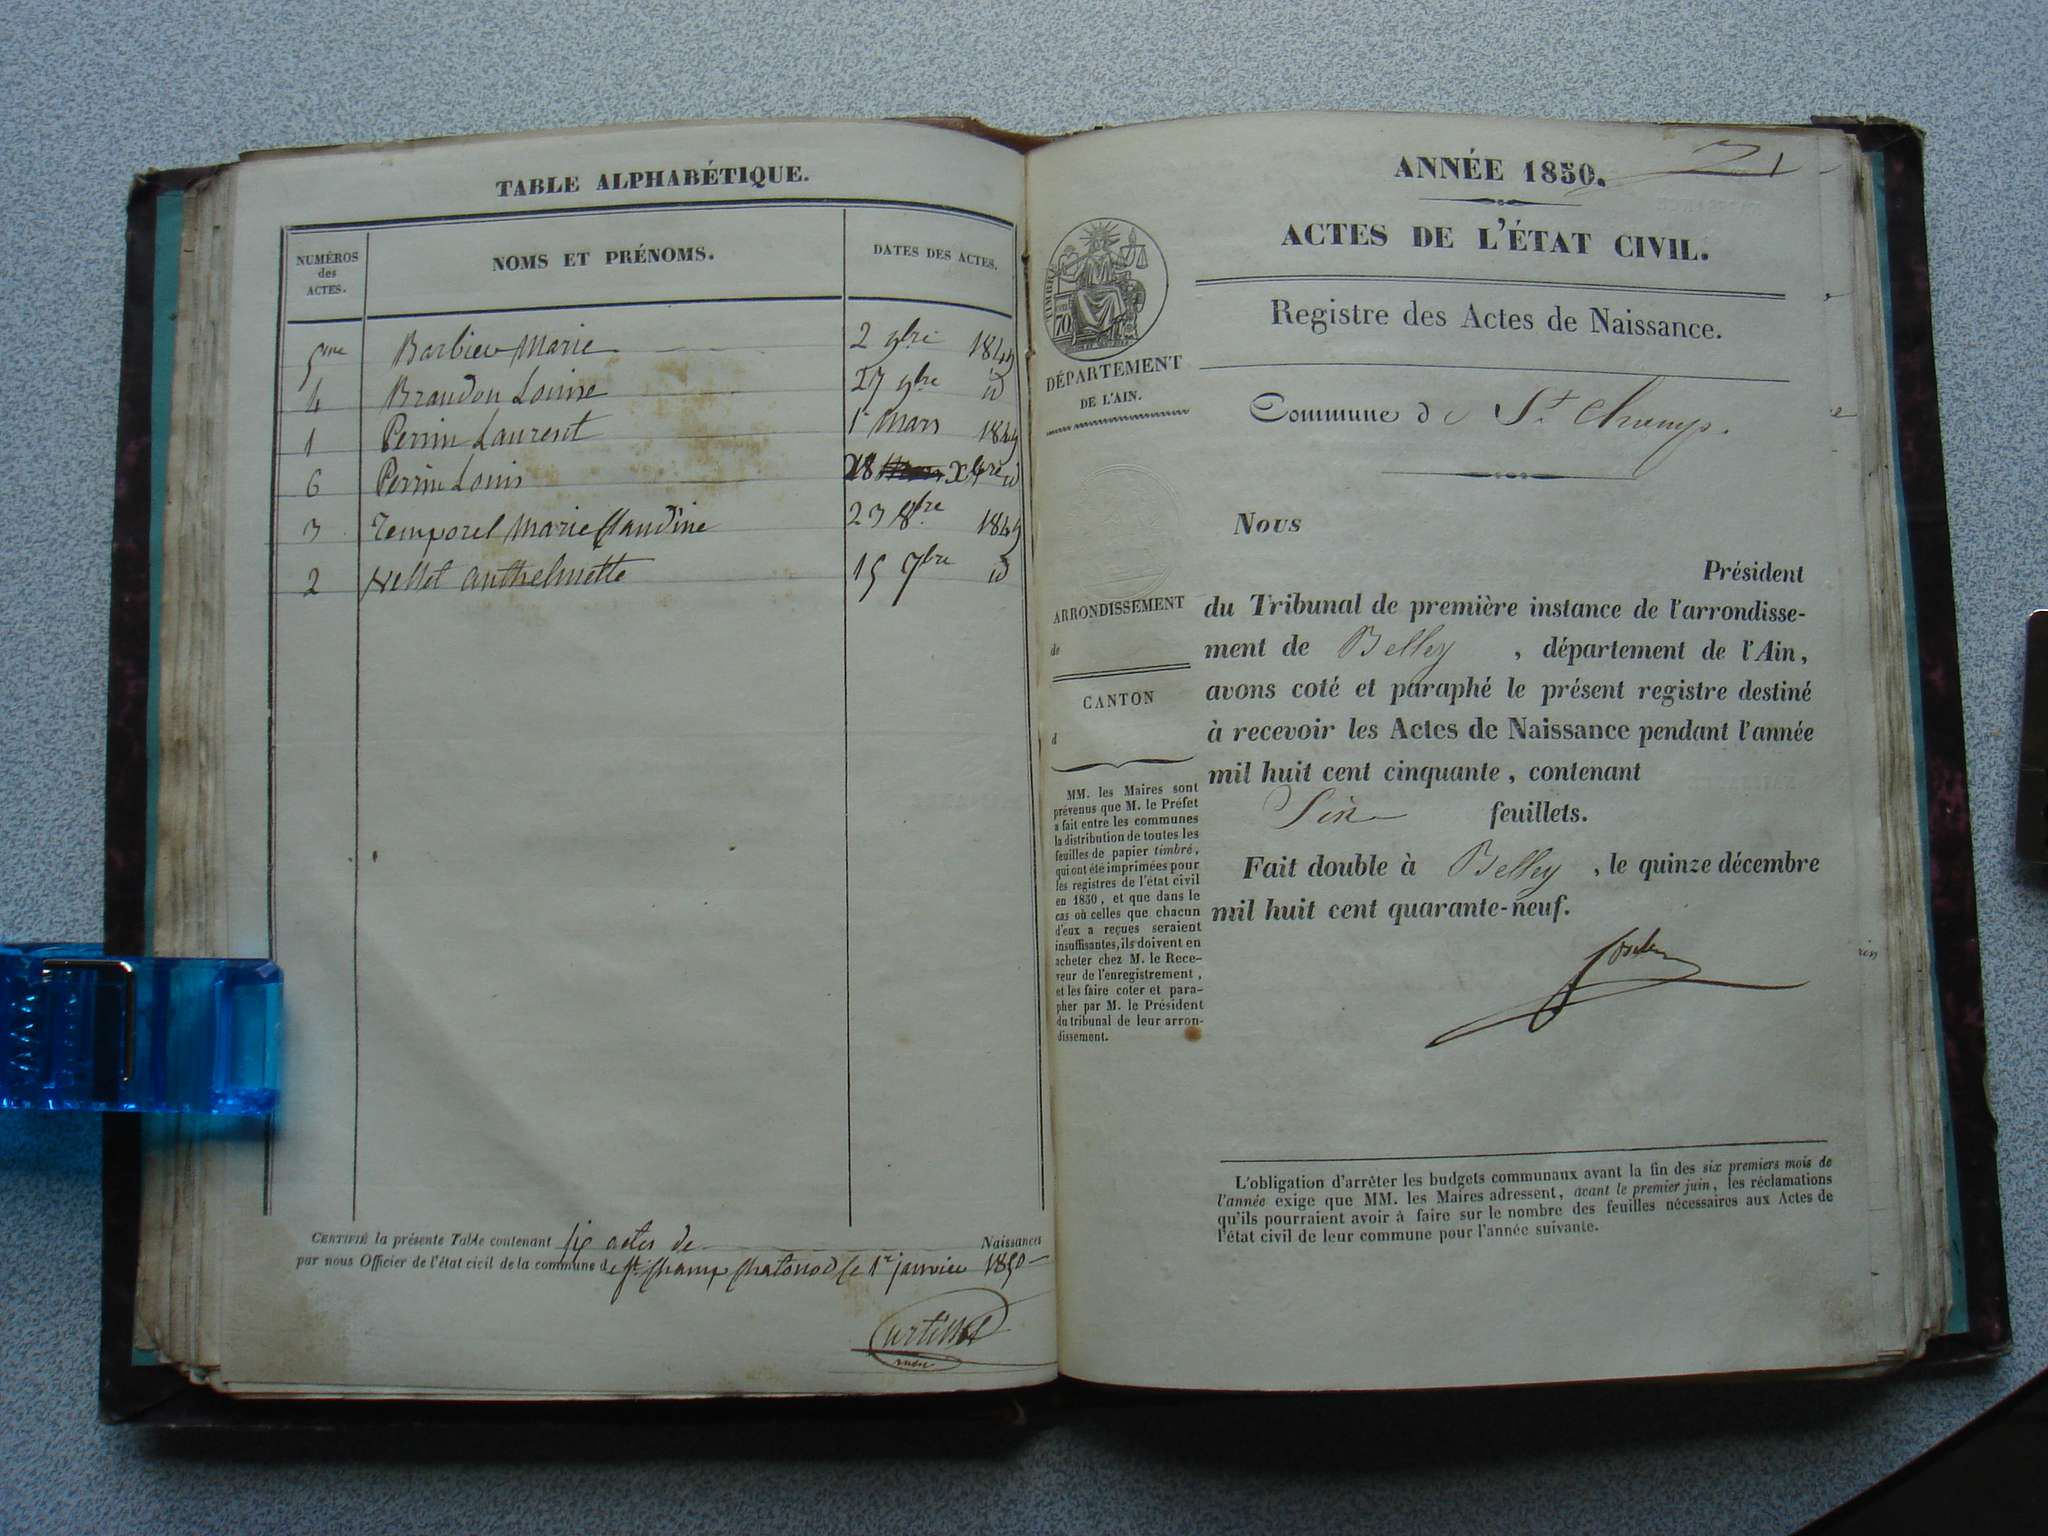 TABLE ALPHABÉTIQUE.
NUMÉROS
des
ACTES.
NOMS ET PRÉNOMS.
DATES DES ACTES.
5me Barbier Marie 2 9bre 1849
4 Brandon Louise 27 9bre id
1 Perrin Laurent 1r Mars 1849
6 Perrin Louis 28 Xbre id
3 Temporel Marie Claudine 23 8bre 1849
2 Vellet Anthelmette 15 7bre id
CERTIFIÉ la présente Table contenant six actes de Naissances
par nous Officier de l'état civil de la commune de St. Champ Chatonod le 1r janvier 1850
maire
ANNÉE 1850.
ACTES DE L'ÉTAT CIVIL.
Registre des Actes de Naissance.
TIMBRE
70
DÉPARTEMENT
DE L'AIN.
Commune de St. Champ.
Nous
Président
du Tribunal de première instance de l'arrondisse-
ment de Belley, département de l'Ain,
avons coté et paraphé le présent registre destiné
à recevoir les Actes de Naissance pendant l'année
mil huit cent cinquante, contenant
Six feuillets.
Fait double à Belley, le quinze décembre
mil huit cent quarante-neuf.
ARRONDISSEMENT
de
CANTON
d
MM. les Maires sont
prévenus que M. le Préfet
a fait entre les communes
la distribution de toutes les
feuilles de papier timbré,
qui ont été imprimées pour
les registres de l'état civil
en 1850, et que dans le
cas où celles que chacun
d'eux a reçues seraient
insuffisantes, ils doivent en
acheter chez M. le Rece-
veur de l'enregistrement,
et les faire coter et para-
pher par M. le Président
du tribunal de leur arron-
dissement.
L'obligation d'arrêter les budgets communaux avant la fin des six premiers mois de
l'année exige que MM. les Maires adressent, avant le premier juin, les réclamations
qu'ils pourraient avoir à faire sur le nombre des feuilles nécessaires aux Actes de
l'état civil de leur commune pour l'année suivante.